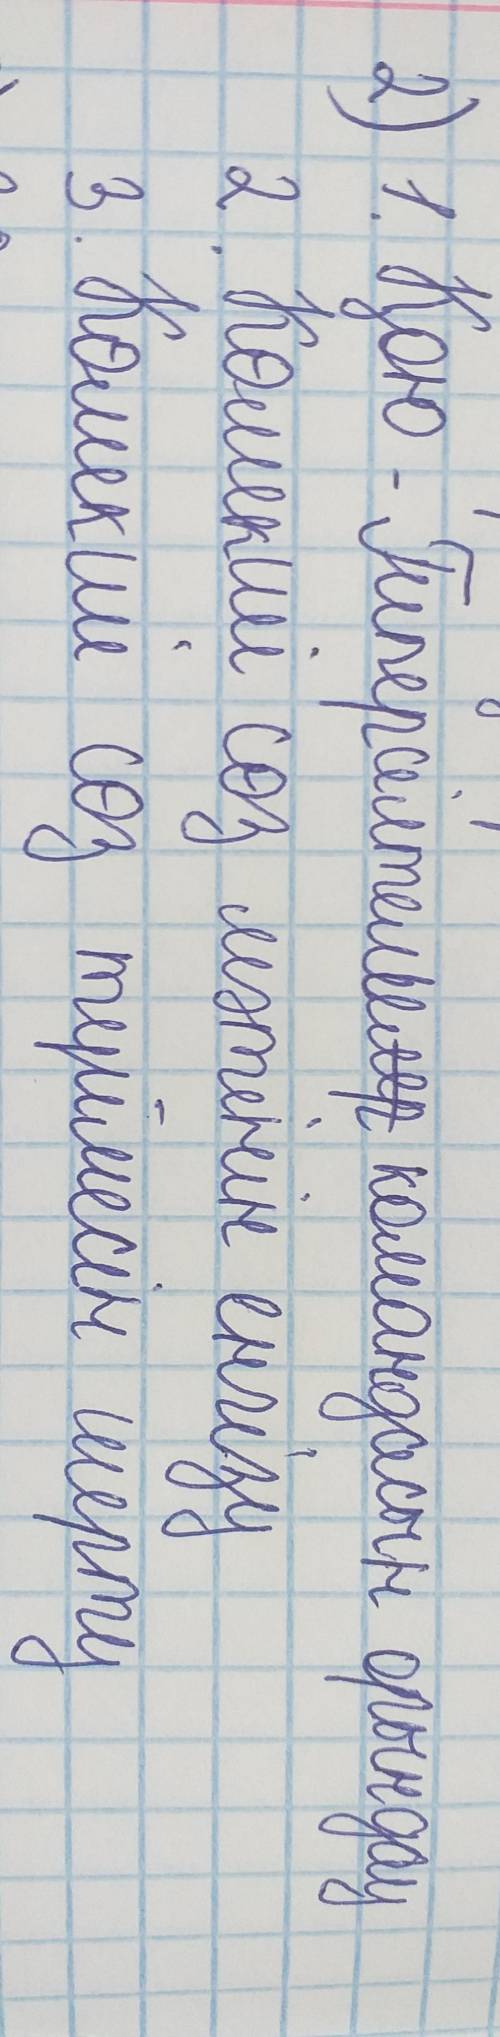 2) 1. Қою - Гиперсілтеме командасын орындау
2. Көмекші сөз мәтінін енгізу
3. Көмекші сөз түймесін шерту